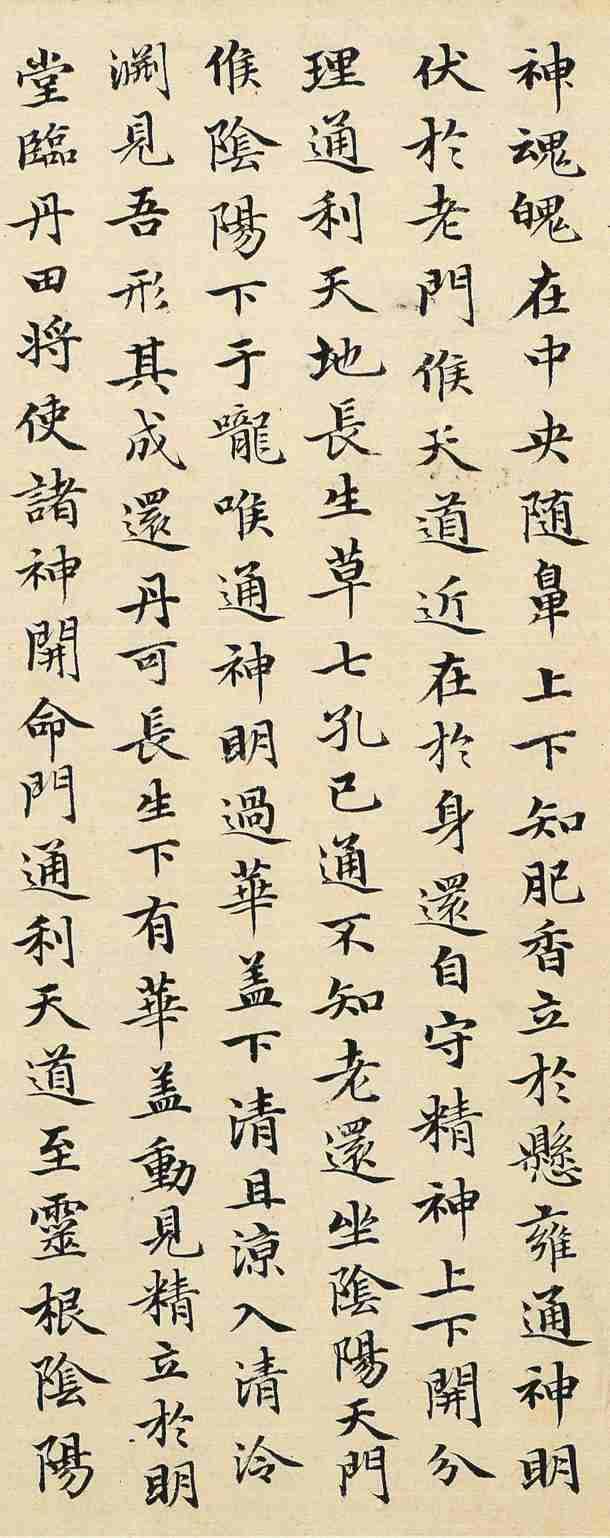 神魂魄在中央随鼻上下知肥香立於懸雍通神明
伏於老門候天道近在於身還自守精神上下開分
理通利天地長生草七孔已通不知老還坐陰陽天門
候陰陽下于嚨喉通神明過華盖下清且涼入清泠
渊見吾形其成還丹可長生下有華盖動見精立於明
堂臨丹田将使諸神開命門通利天道至靈根陰陽